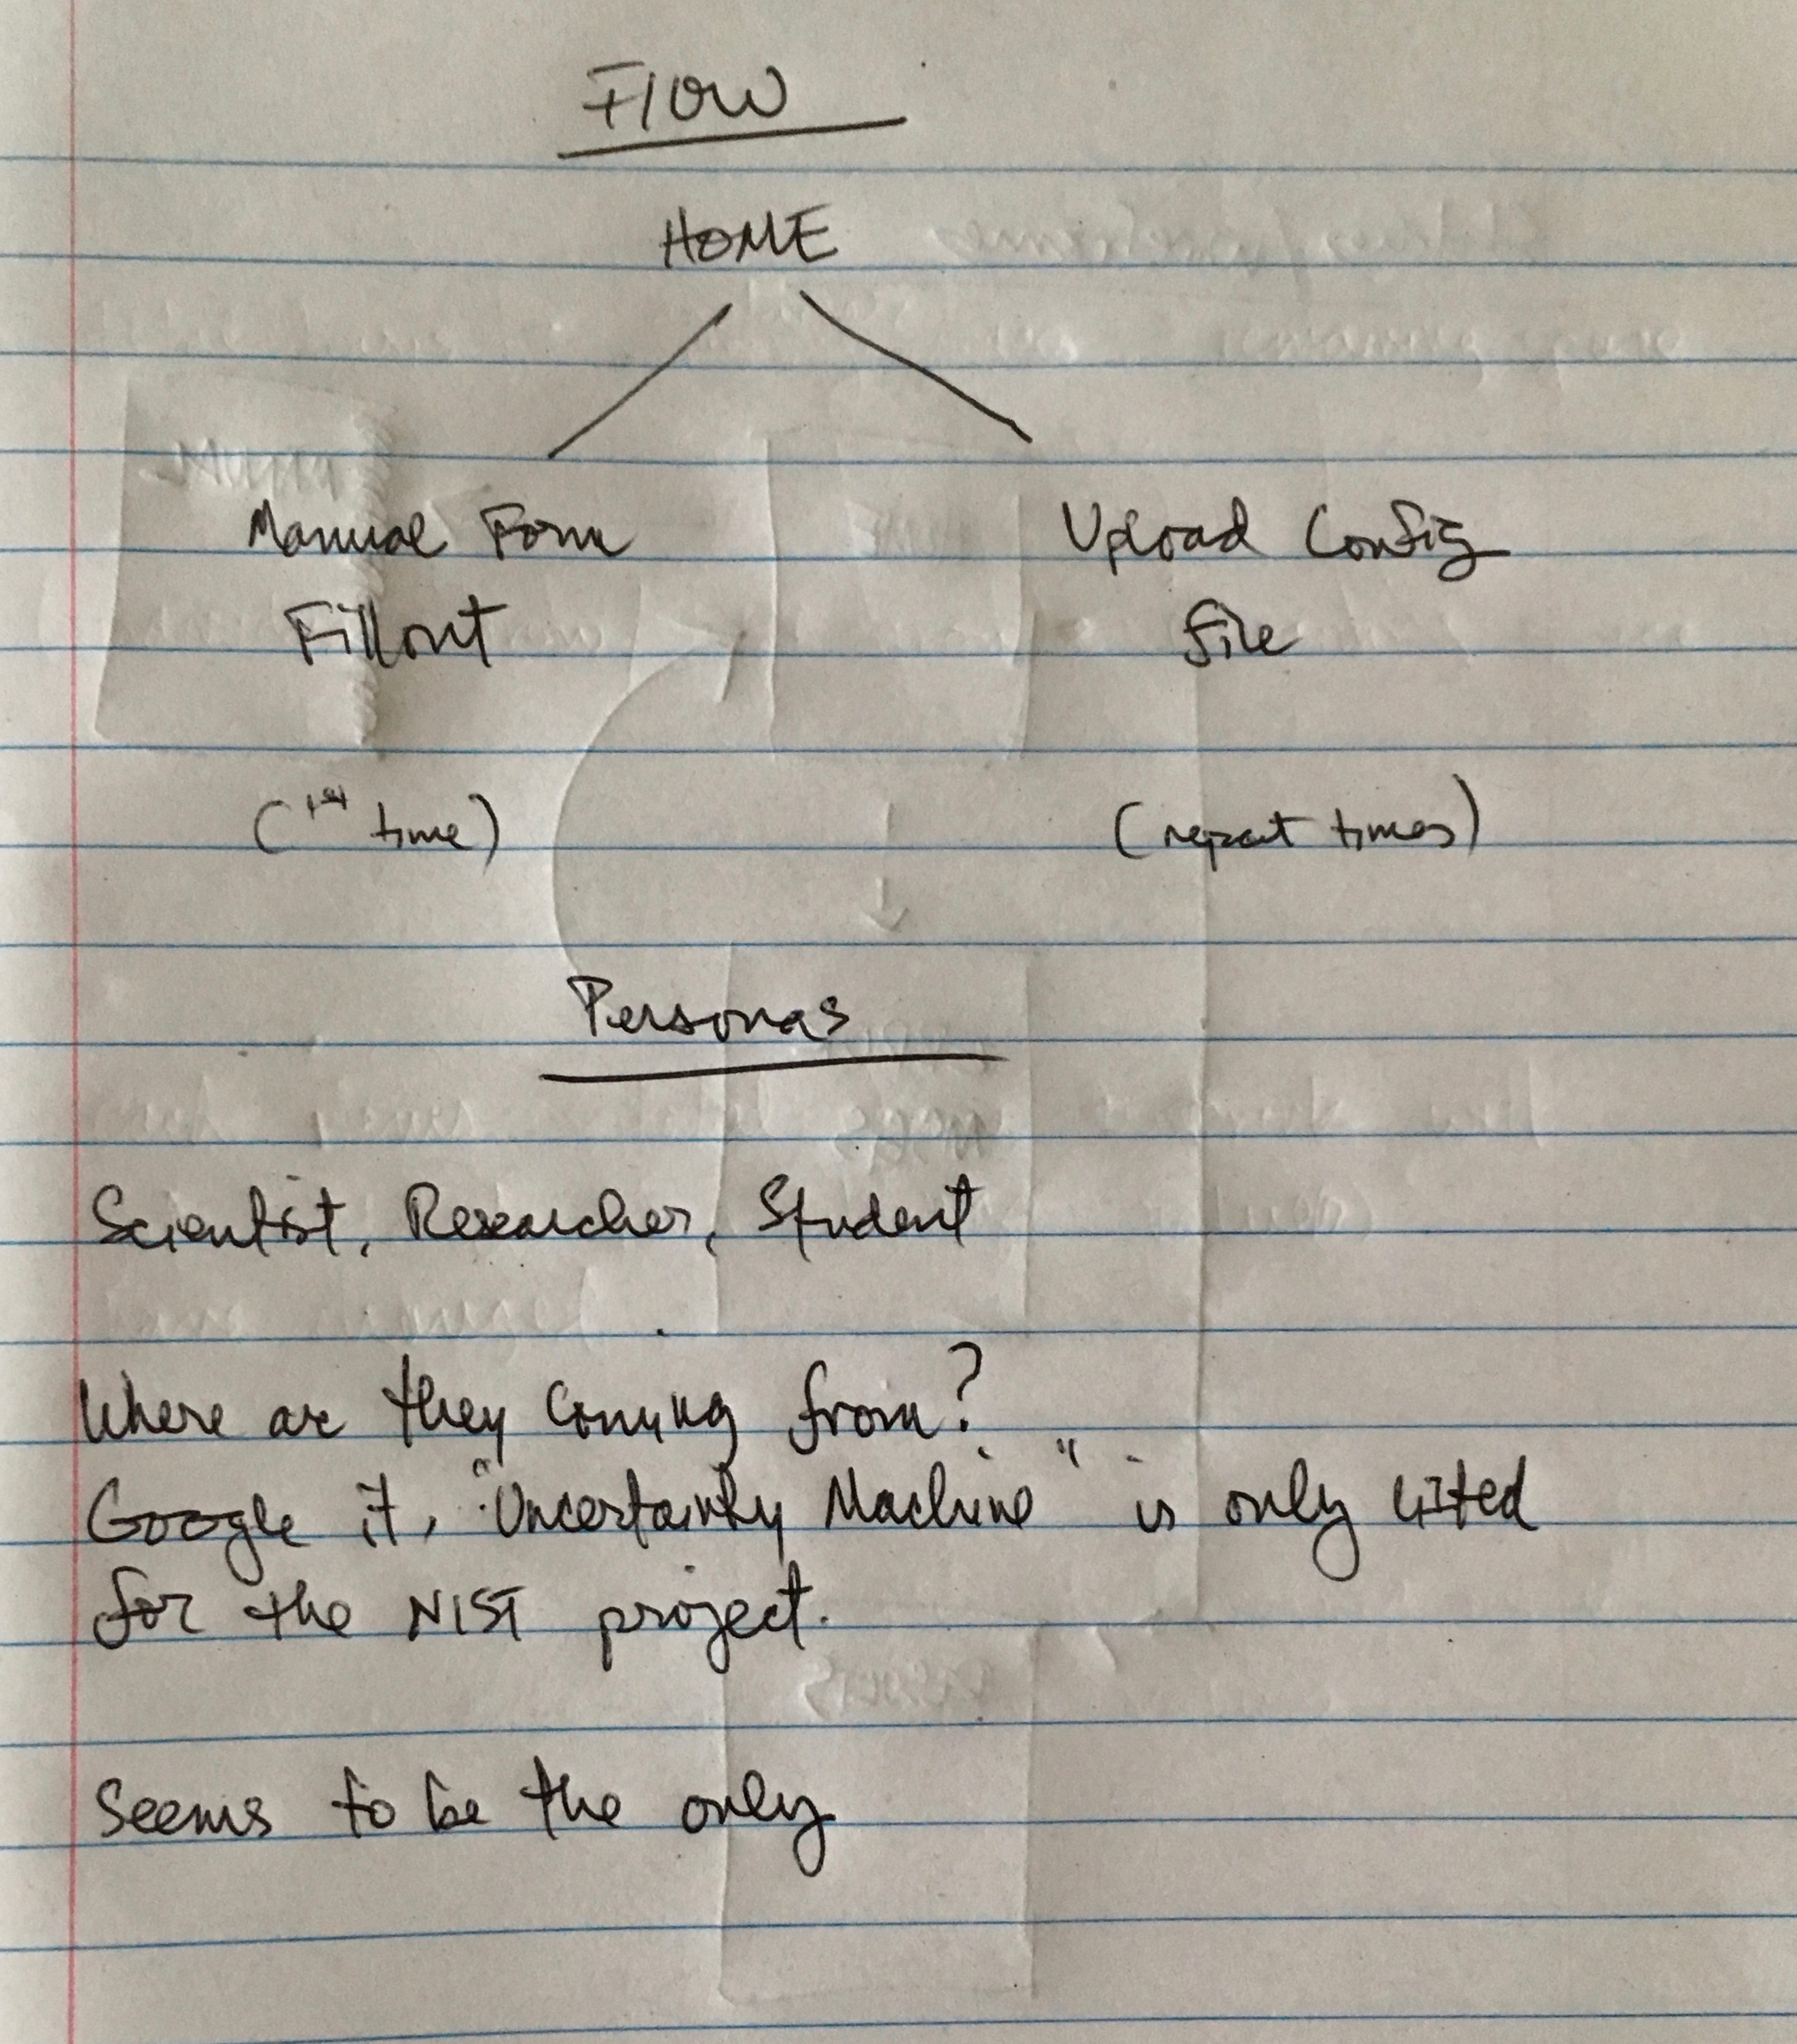 Flow
HOME
Manual Form
Fillout
Upload Config
file
(1st time)
(repeat times)
Personas
Scientist, Researcher, Student
Where are they coming from?
Google it, "Uncertainty Machine" is only
for the NIST project.
Seems to be the only